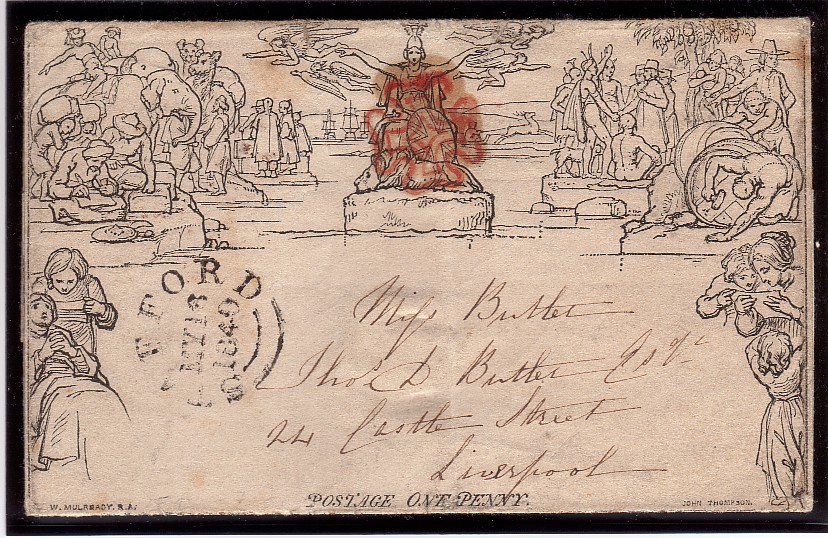 MY 16
1840
Miss Butler
Thos D Butler Esqr
24 Castle Street
Liverpool
POSTAGE ONE PENNY.
W. MULREADY. R.A.
JOHN THOMPSON.